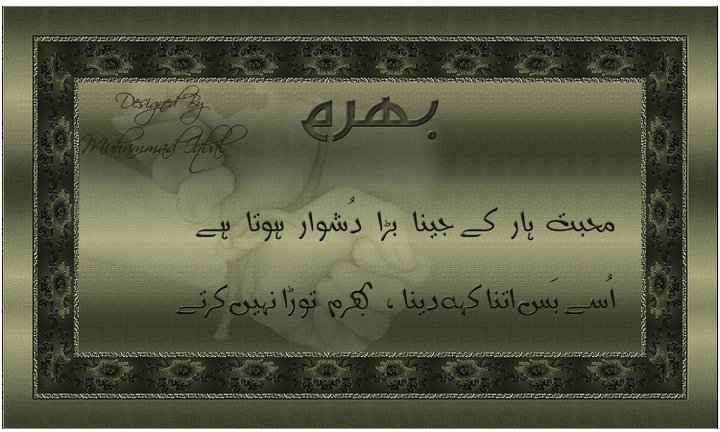 Designed By
Muhammad Iqbal
بھرم
محبت ہار کے جینا بڑا دُشوار ہوتا ہے
اُسے بَس اتنا کہہ دینا ، بھرم توڑا نہیں کرتے